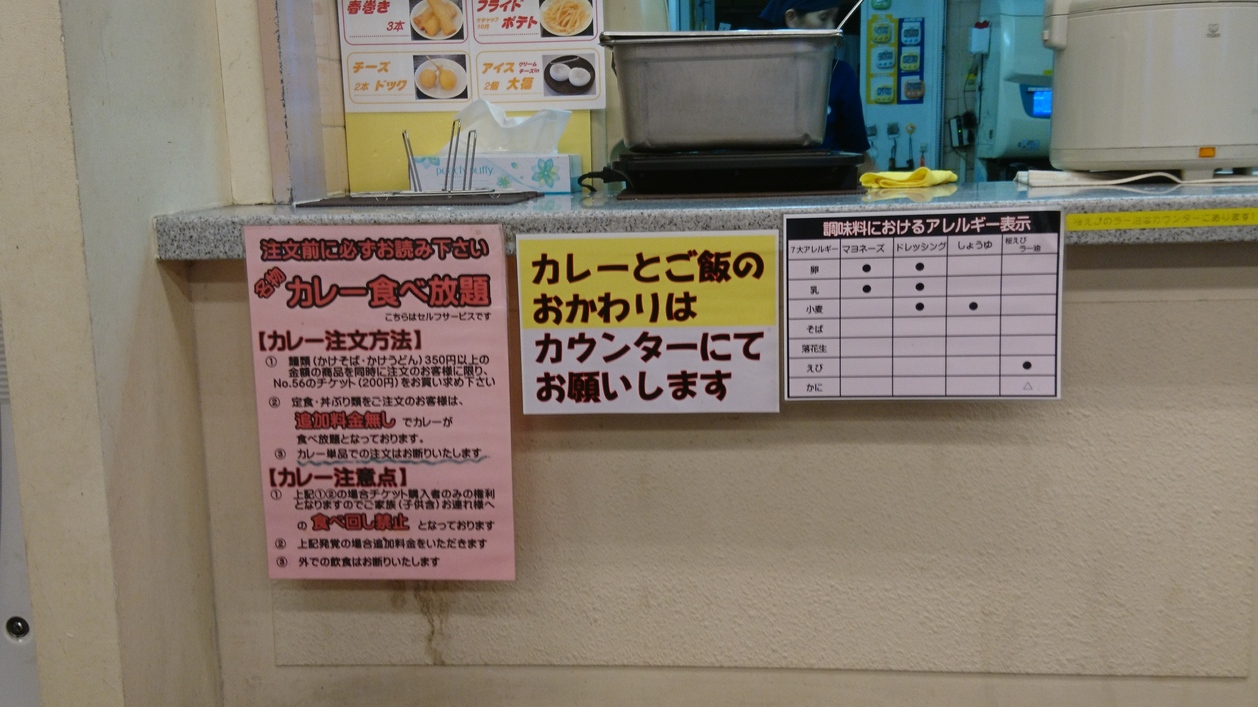 春巻き
3本
フライド
ポテト
チーズ
2本 ドック
アイス クリームチーズin
2個 大福
注文前に必ずお読み下さい
名物
カレー食べ放題
こちらはセルフサービスです
【カレー注文方法】
① 麺類(かけそば・かけうどん)350円以上の
金額の商品を同時に注文のお客様に限り、
No.56のチケット(200円)をお買い求め下さい
② 定食・丼ぶり類をご注文のお客様は、
追加料金無し でカレーが
食べ放題となっております。
③ カレー単品での注文はお断りいたします
【カレー注意点】
① 上記①②の場合チケット購入者のみの権利
となりますのでご家族(子供含)お連れ様へ
の 食べ回し禁止 となっております
② 上記発覚の場合追加料金をいただきます
③ 外での飲食はお断りいたします
カレーとご飯の
おかわりは
カウンターにて
お願いします
調味料におけるアレルギー表示
7大アレルギー マヨネーズ ドレッシング しょうゆ 桜えびラー油
卵 ● ●
乳 ● ●
小麦 ● ●
そば
落花生
えび ●
かに △
桜えびのラー油はカウンターにあります